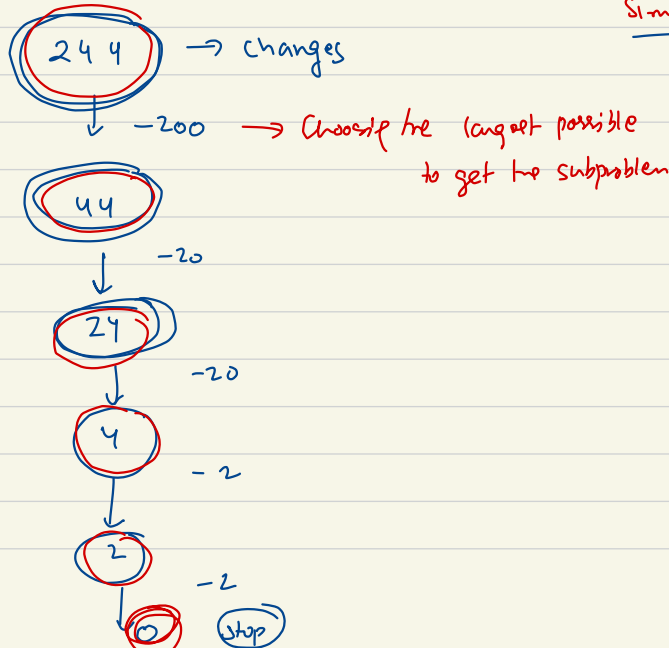 Sim
244 → changes
-200 → Choosing the largest possible
to get the subproblem
44
-20
24
-20
4
-2
2
-2
0 stop